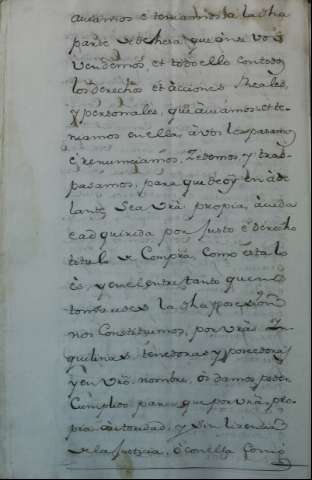 auiamos e teniamos a la dha
parte de dehesa, que ansi vos
vendemos, et todo ello con todos
los derechos et acciones Reales,
y personales, que auiamos, et te-
niamos en ella, a vos los pasamos
é renunciamos, Zedemos, y tras-
pasamos, para que de oy en ade
lante, sea vrã propia, auida
e adquirida por justo é derecho
titulo de Compra, Como esta lo
és, y en el entre tanto que
tomades la dha posesion
nos Constituimos, por vrãs In-
quilinas, tenedoras y poseedoras
y en vrõ nombre, ós damos poder
Cumplido para que por vrã pro-
pia autoridad, y sin licencia
de la Justicia, ó con ella Como